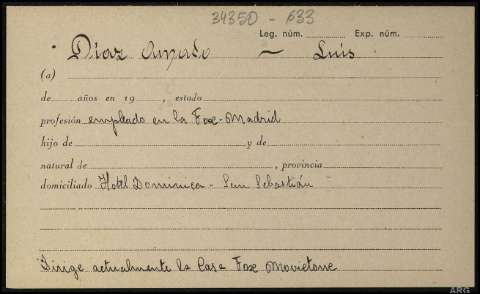 34350 - 633
Leg. núm. Exp. núm.
Díaz Amado ~ Luis
(a)
de años en 19 , estado
profesión empleado en la Fox-Madrid
hijo de y de
natural de , provincia
domiciliado Hotel Dominica - San Sebastián
Dirige actualmente la Casa Fox Movietone
ARG